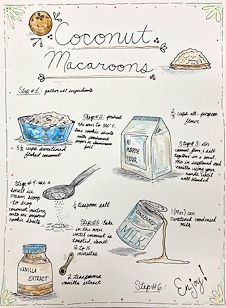 Coconut
Macaroons
Step #1: gather all ingredients
Step #2: preheat
the oven to 350°F,
line cookie sheets
with parchment
paper or aluminum
foil
5 1/2 cups sweetened
flaked coconut
2/3 cup all-purpose
flour
ALL
PURPOSE
FLOUR
Step #3: stir
coconut, flour, & salt
together in a bowl
Mix in sweetened
vanilla
using your
hands until
well blended
Step #4: use a
small ice
cream scoop
to drop
coconut
onto
cookie
sheets
1/4 teaspoon salt
Step #5: bake
in the oven
until coconut is
toasted, about
12 to 15
minutes
MILK
1 (14oz) can
sweetened condensed
milk
VANILLA
EXTRACT
2 teaspoons
vanilla extract
Step #6: Enjoy!